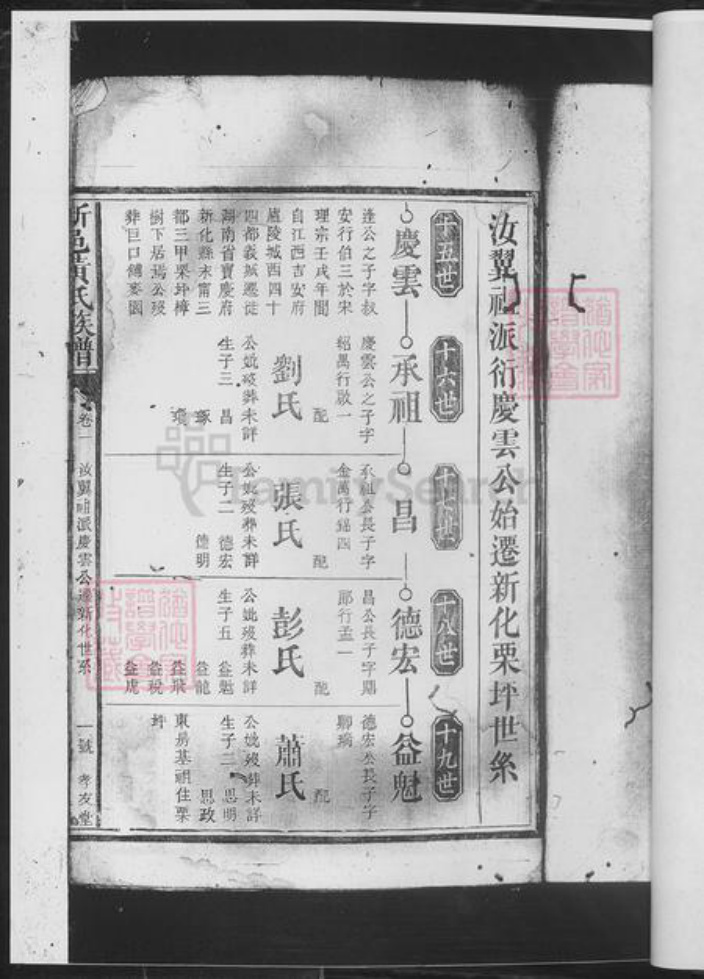 汝翼祖派衍慶雲公始遷新化栗坪世系
十五世
慶雲
逢公之子字叔
安行伯三於宋
理宗壬戌年間
自江西吉安府
廬陵城西四十
四都義城遷徙
湖南省寶慶府
新化縣永甯三
都三甲栗坪樟
樹下居焉公歿
葬巨口傅家園
十六世
承祖
慶雲公之子字
紹禺行啟一
配
劉氏
公妣歿葬未詳
生子三 昌
琢
瓊
十七世
昌
承祖公長子字
金萬行錦四
配
張氏
公妣歿葬未詳
生子二 德宏
德明
十八世
德宏
昌公長子字鼎
郎行孟一
配
彭氏
公妣歿葬未詳
生子五 益魁
益龍
益飛
益稅
益虎
十九世
益魁
德宏公長子字
聊瑀
配
蕭氏
公妣歿葬未詳
生子二 思明
思政
東房基祖住栗
坪
新邑黃氏族譜
卷一
汝翼祖派慶雲公遷新化世系
一號
孝友堂
FamilySearch